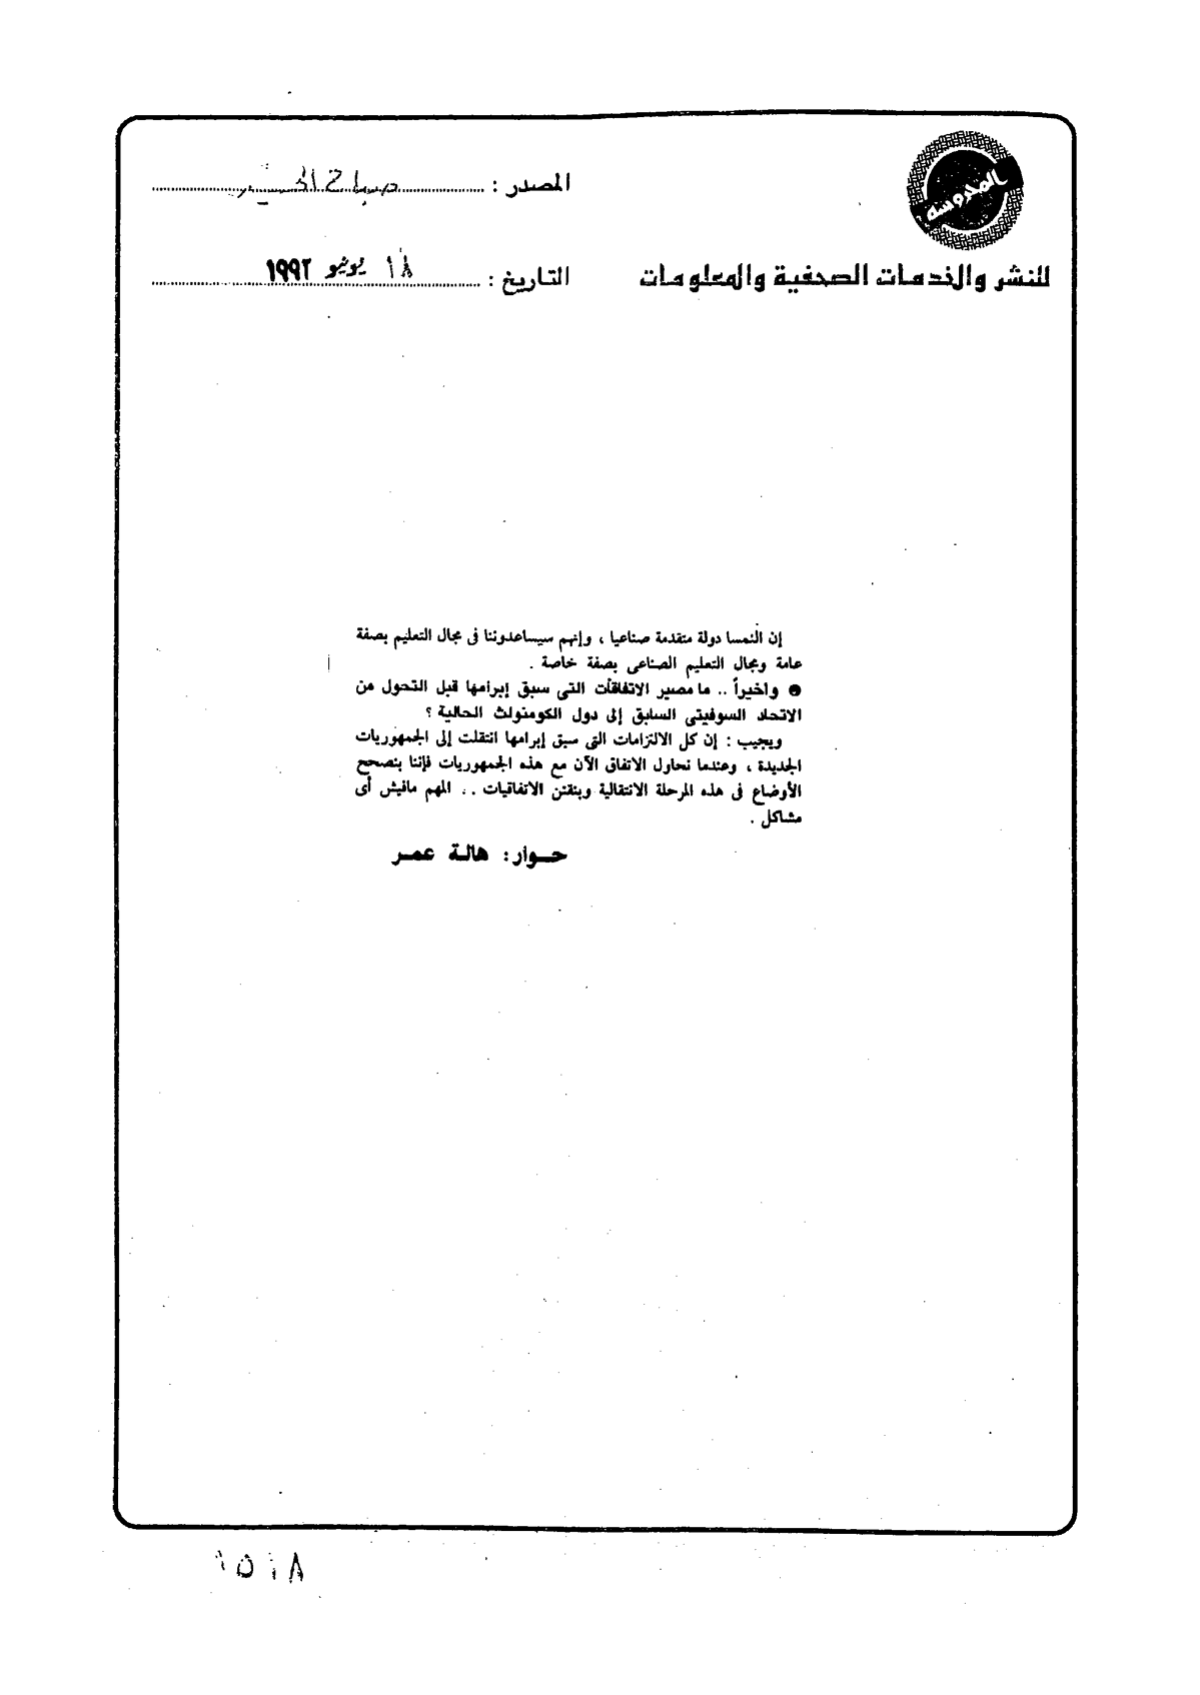 المحروسة
للنشر والخدمات الصحفية والمعلومات
المصدر : صباح الخير
التاريخ : ١٨ يونيو ١٩٩٢
إن النمسا دولة متقدمة صناعيا ، وإنهم سيساعدوننا فى مجال التعليم بصفة
عامة ومجال التعليم الصناعى بصفة خاصة .
● وأخيراً .. ما مصير الاتفاقات التى سبق إبرامها قبل التحول من
الاتحاد السوفيتى السابق إلى دول الكومنولث الحالية ؟
ويجيب : إن كل الالتزامات التى سبق إبرامها انتقلت إلى الجمهوريات
الجديدة ، وعندما نحاول الاتفاق الآن مع هذه الجمهوريات فإننا بنصحح
الأوضاع فى هذه المرحلة الانتقالية وبنقنن الاتفاقيات .. المهم مافيش أى
مشاكل .
حوار : هالة عمر